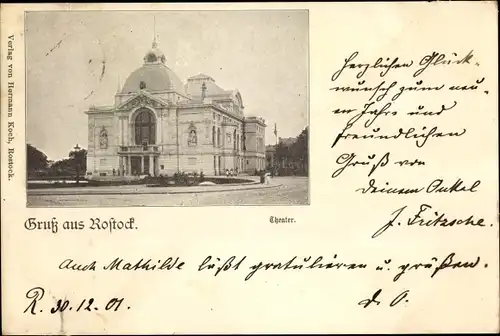 Verlag von Hermann Koch, Rostock.
Gruß aus Rostock.
Theater.
Herzlichen Glück-
wunsch zum neu-
en Jahre und
freundlichen
Gruß von
deinem Onkel
J. Fritzsche.
Auch Mathilde läßt gratulieren u. grüßen.
R. 30.12.01.
d. O.